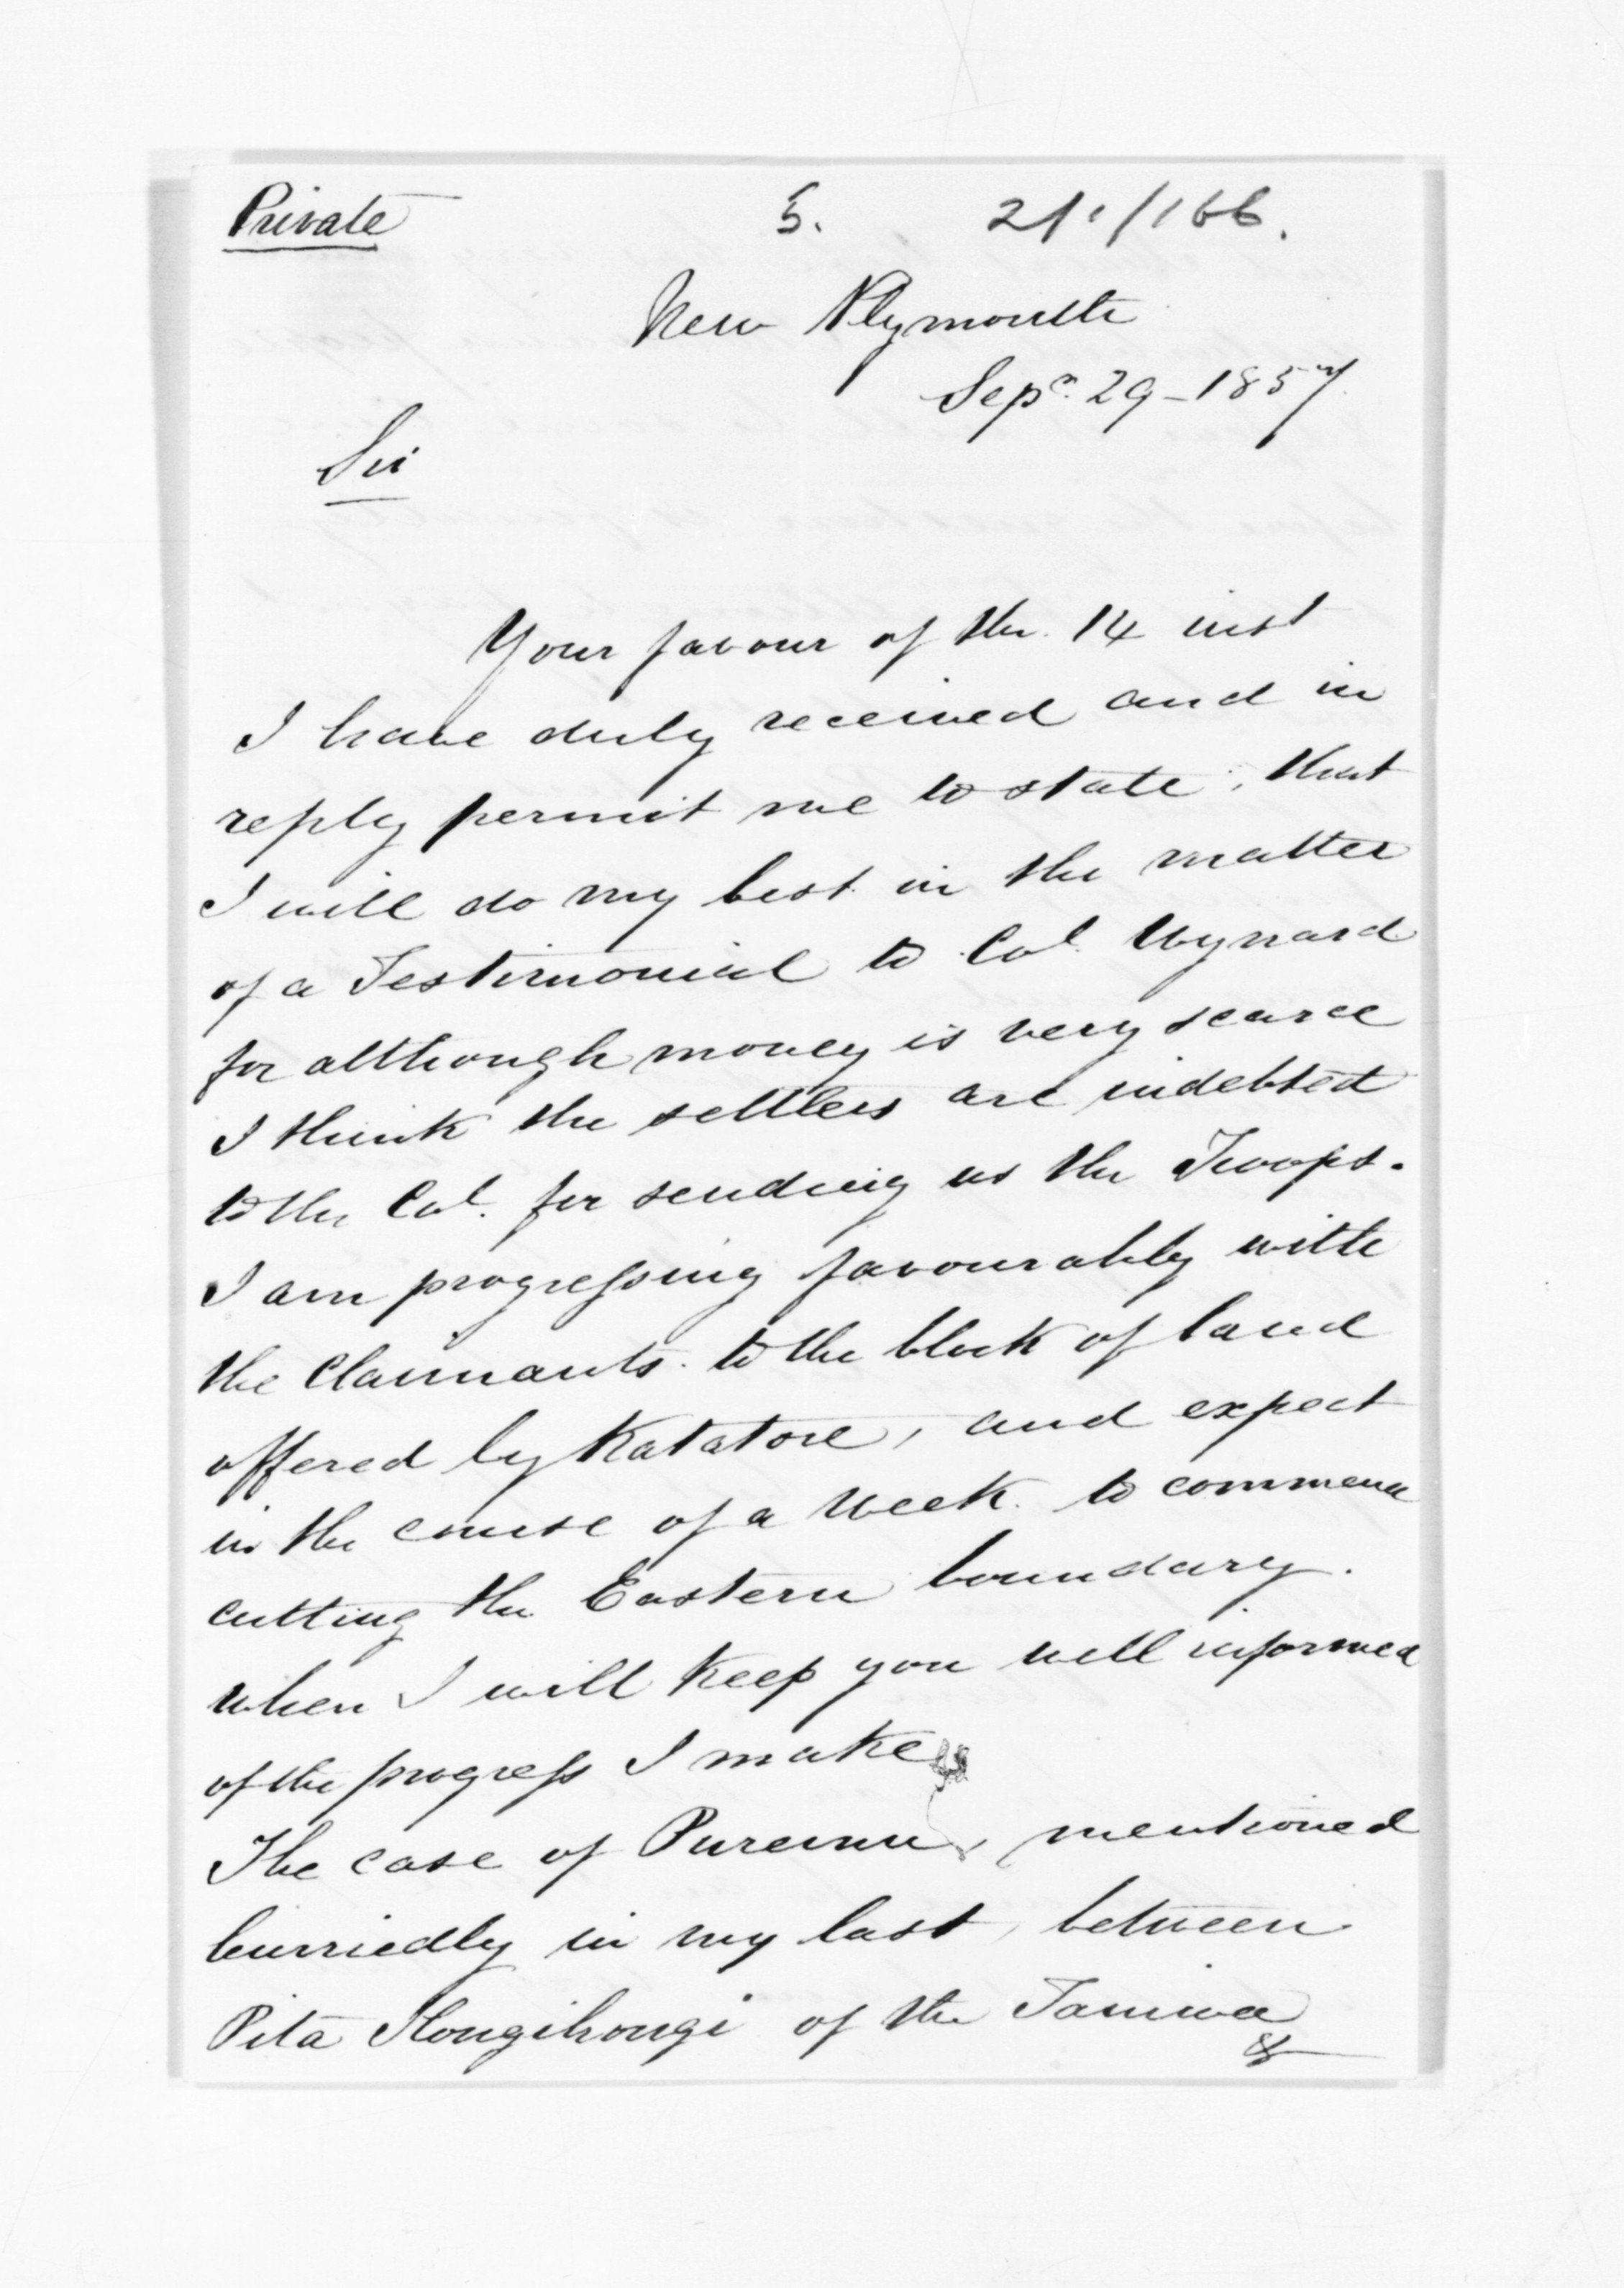 Private 5. 21./166.
New Plymouth
Sepr. 29 - 1857
Sir
Your favour of the 14 inst
I have duly received and in
reply permit me to state, that
I will do my best in the matter
of a Testimonial to Col. Wynard
for although money is very scarce
I think the settlers are indebted
to the Col. for sending us the Troops.
I am progressing favourably with
the Claimants to the block of land
offered by Katatore, and expect
in the course of a week to commence
cutting the Eastern boundary.
when I will keep you well informed
of the progress I make
The case of Puremu, mentioned
hurriedly in my last, between
Pita Hongihongi of the Taniwa
&